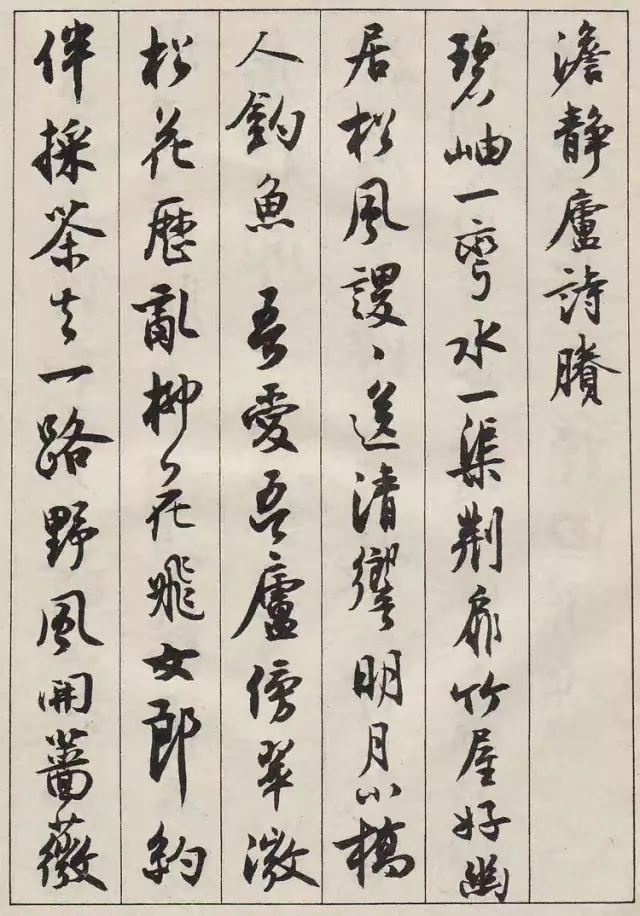 澹静廬詩賸
碧岫一彎水一渠荆扉竹屋好幽
居松風謖〻送清響明月小橋
人釣魚　吾愛吾廬傍翠微
松花歷亂柳花飛女郎約
伴採茶去一路野風開薔薇